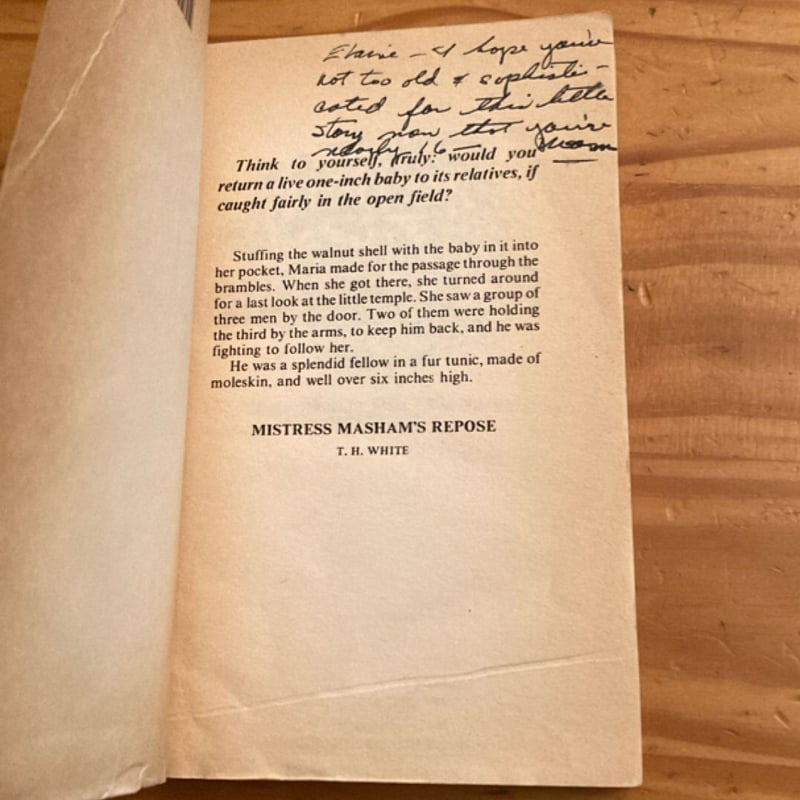 Elaine — I hope you're
not too old & sophisti-
cated for this little
story now that you're
nearly 16 — Mom
Think to yourself, truly: would you
return a live one-inch baby to its relatives, if
caught fairly in the open field?
Stuffing the walnut shell with the baby in it into
her pocket, Maria made for the passage through the
brambles. When she got there, she turned around
for a last look at the little temple. She saw a group of
three men by the door. Two of them were holding
the third by the arms, to keep him back, and he was
fighting to follow her.
He was a splendid fellow in a fur tunic, made of
moleskin, and well over six inches high.
MISTRESS MASHAM'S REPOSE
T. H. WHITE